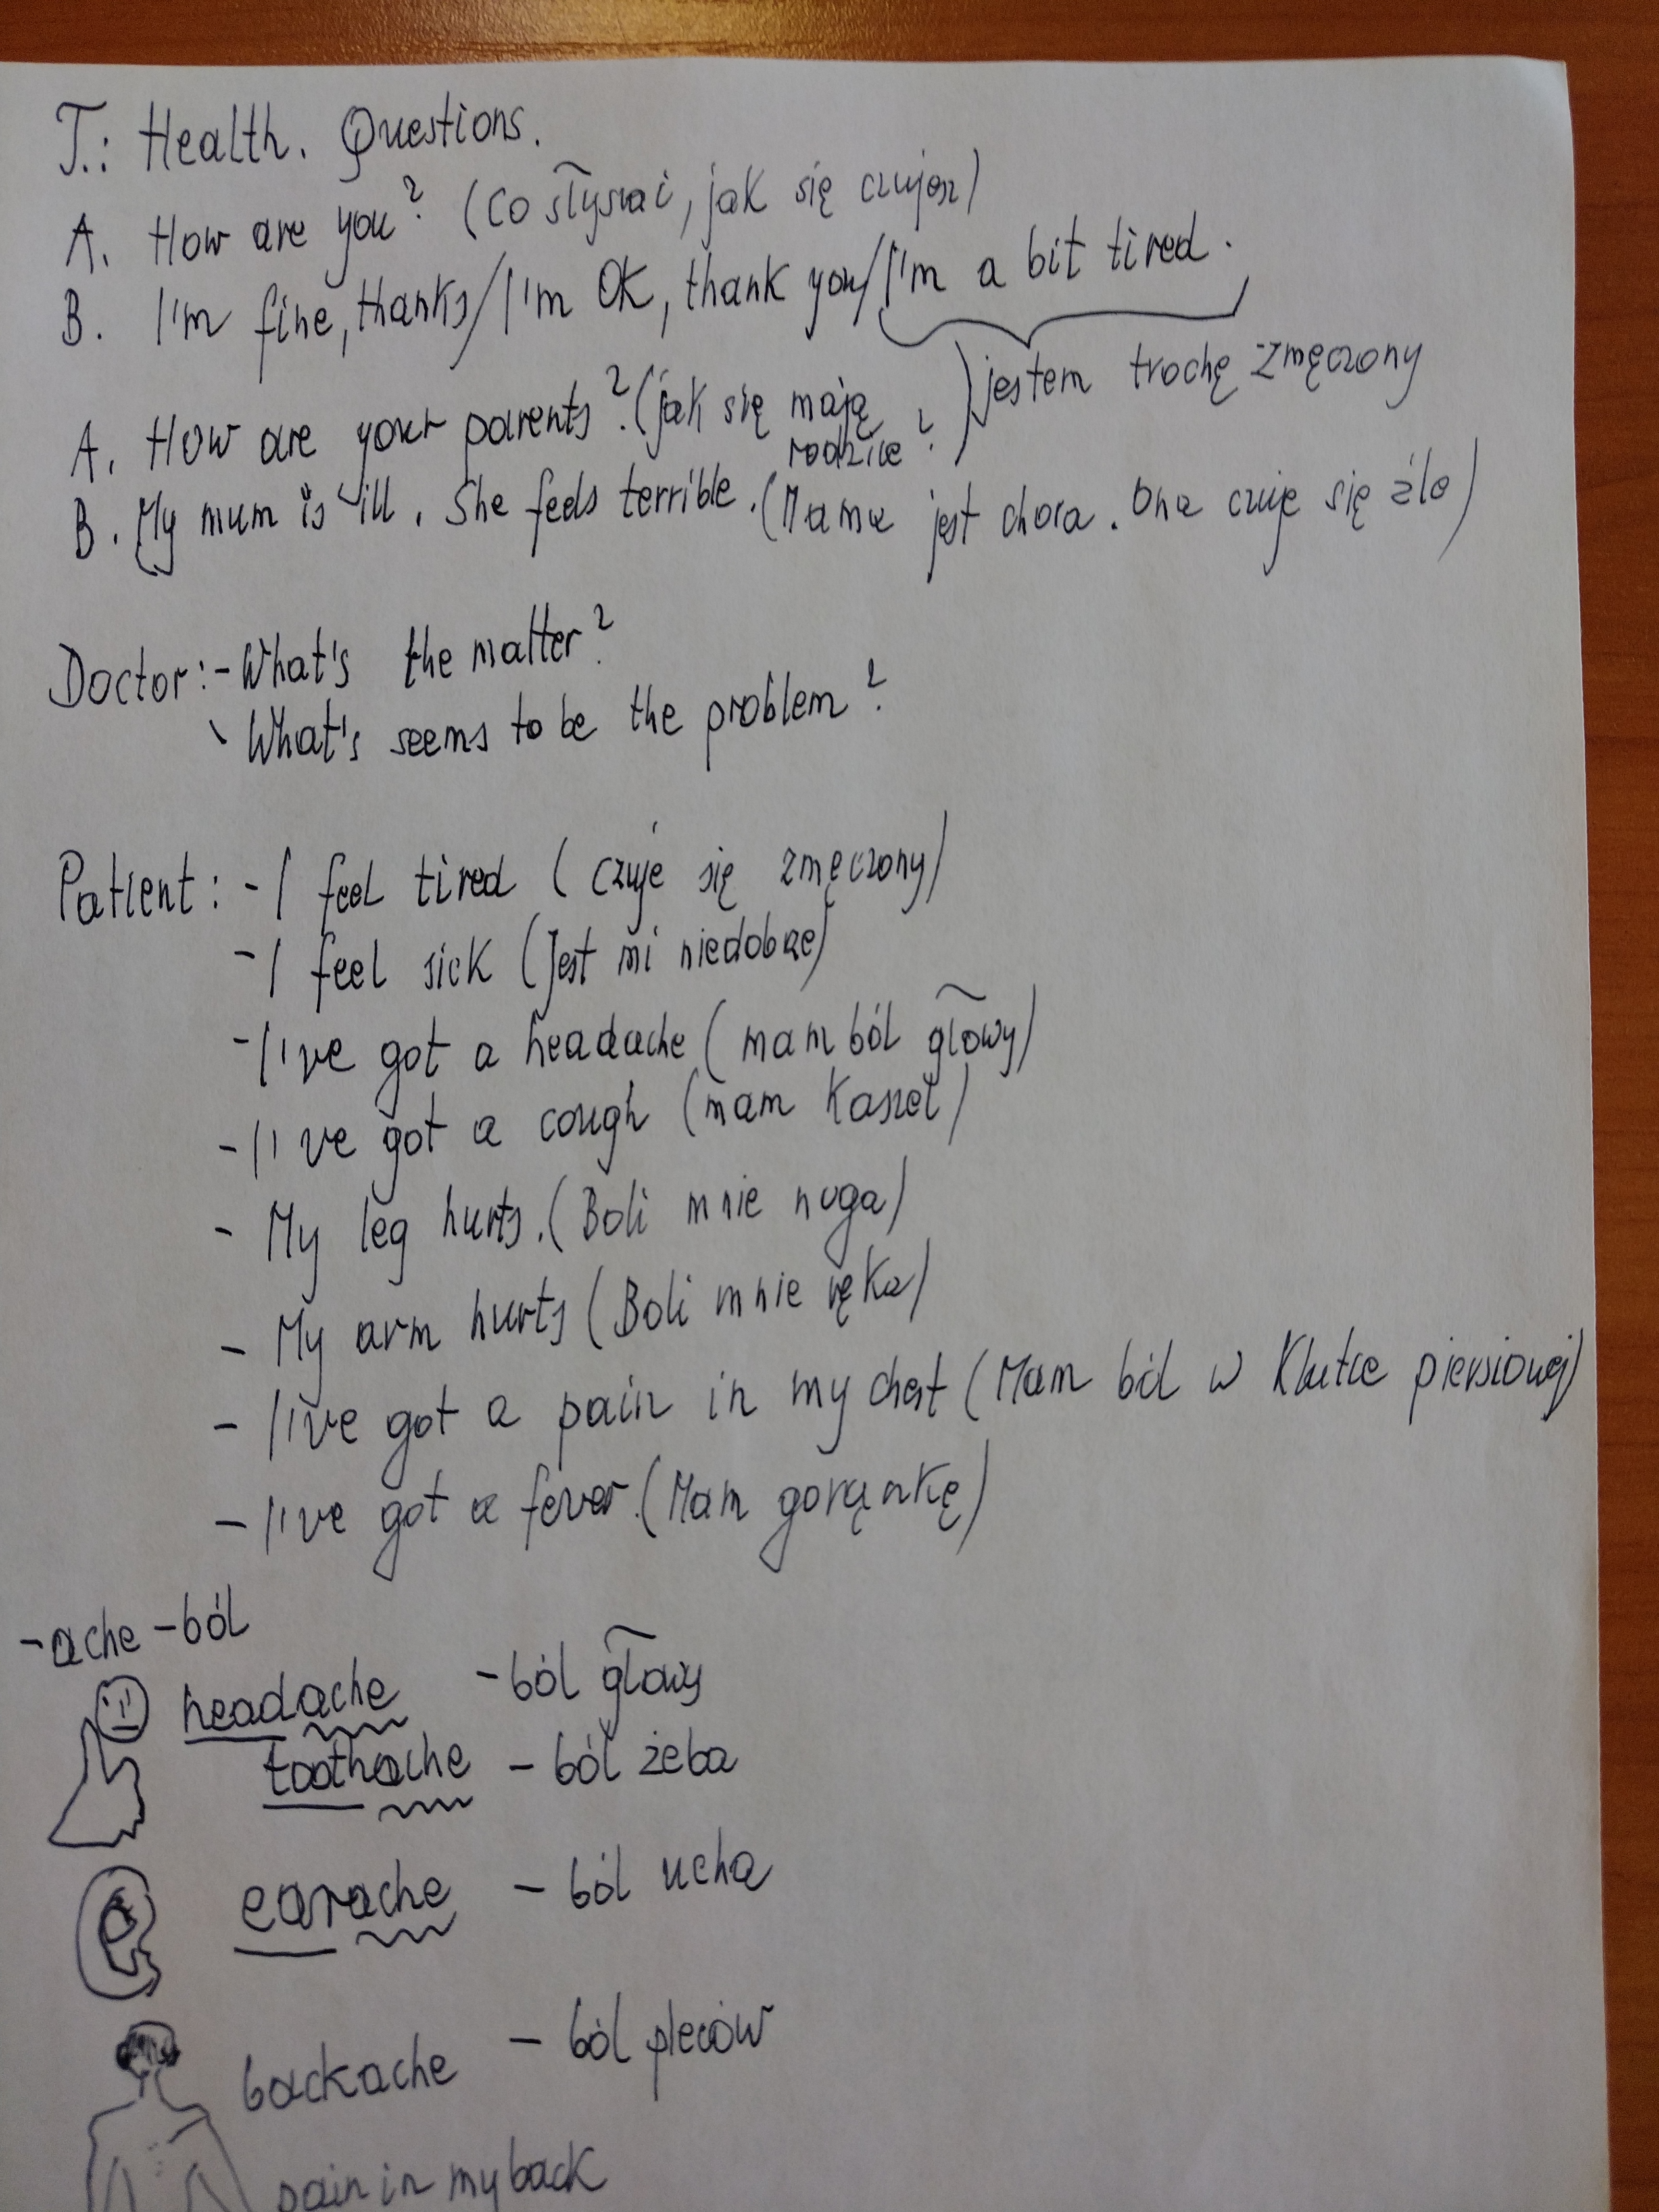 T.: Health. Questions.
A. How are you? (Co słychać, jak się czujesz)
B. I'm fine, thanks/I'm OK, thank you/I'm a bit tired.
jestem trochę zmęczony
A. How are your parents? (jak się mają
rodzice?)
B. My mum is ill. She feels terrible. (Mama jest chora. Ona czuje się źle)
Doctor: - What's the matter?
- What's seems to be the problem?
Patient: - I feel tired (czuje się zmęczony)
- I feel sick (Jest mi niedobrze)
- I've got a headache (mam ból głowy)
- I've got a cough (mam kaszel)
- My leg hurts. (Boli mnie noga)
- My arm hurts (Boli mnie ręka)
- I've got a pain in my chest (Mam ból w klatce piersiowej)
- I've got a fever. (Mam gorączkę)
-ache - ból
headache - ból głowy
toothache - ból zeba
earache - ból ucha
backache - ból pleców
pain in my back